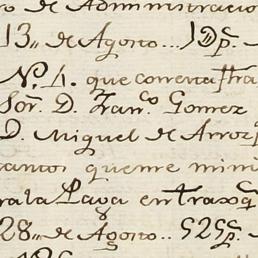 de Administracio
13,, de Agosto... 1Dps.
Nº. 1. que con esta
Sor. D. Franco. Gomez
D. Miguel de Arroz
tantos que me
para la Paga en
28,, de Agosto.. 525ps.